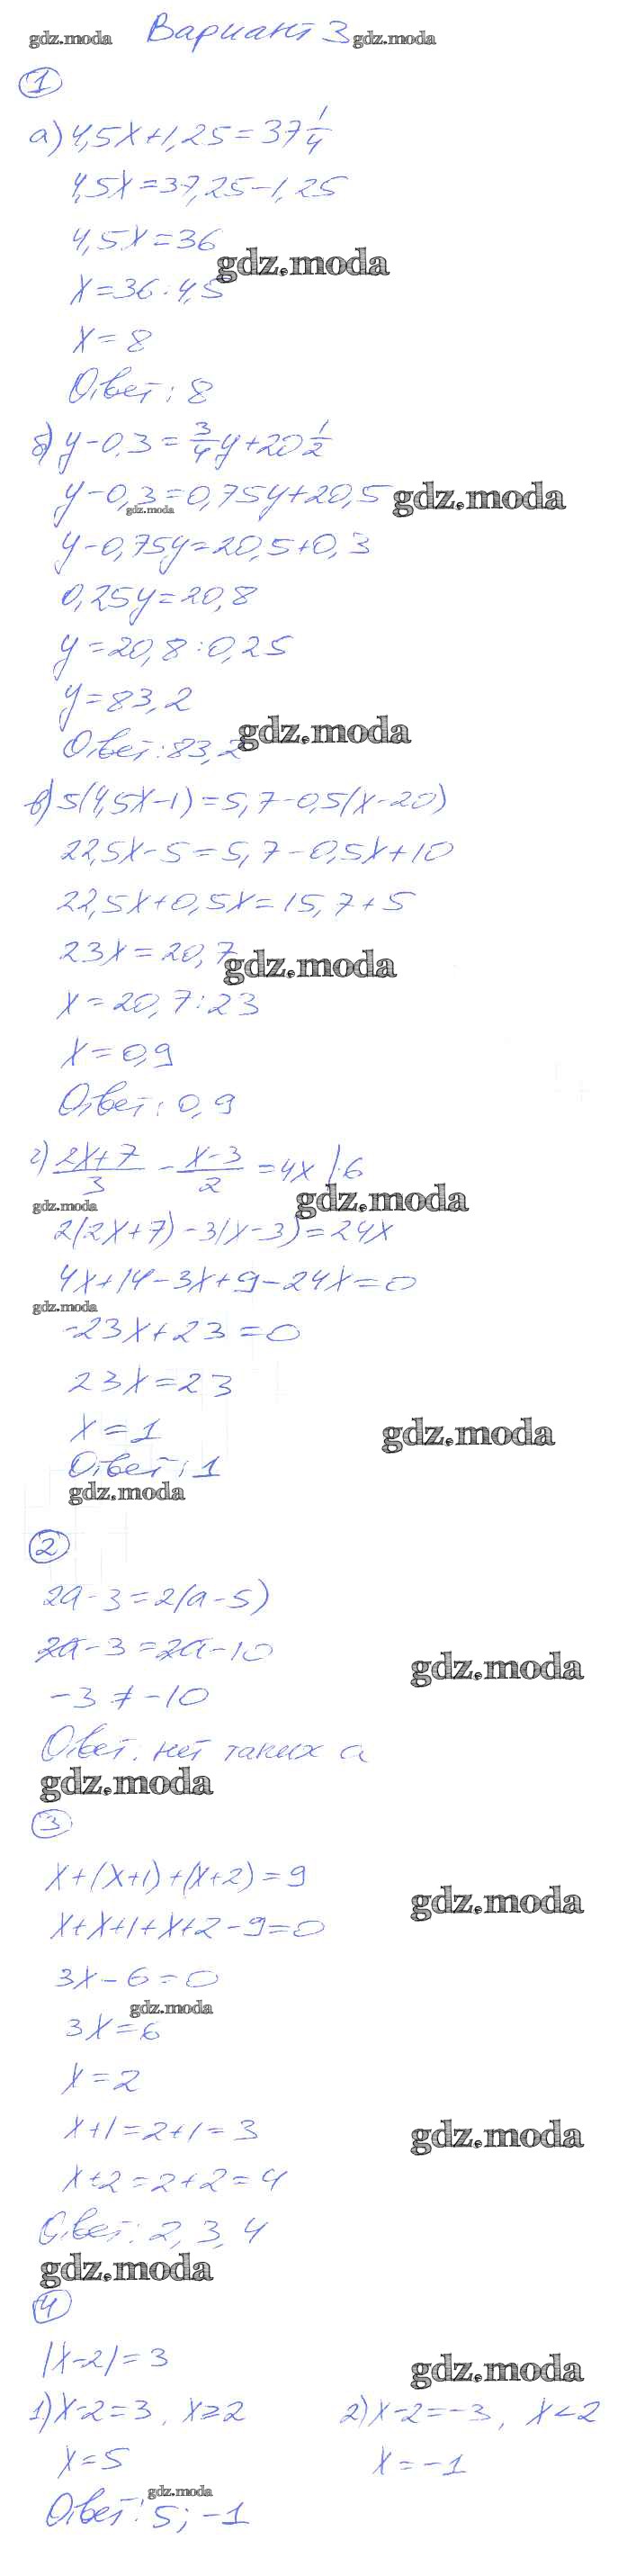 gdz.moda Вариант 3 gdz.moda
1
а) 4,5x+1,25=37 1/4
4,5x=37,25-1,25
4,5x=36
gdz.moda
x=36:4,5
x=8
Ответ: 8
б) y-0,3=3/4y+20 1/2
y-0,3=0,75y+20,5 gdz.moda
gdz.moda
y-0,75y=20,5+0,3
0,25y=20,8
y=20,8:0,25
y=83,2
Ответ: 83,2 gdz.moda
в) 5(4,5x-1)=5,7-0,5(x-20)
22,5x-5=5,7-0,5x+10
22,5x+0,5x=15,7+5
23x=20,7
gdz.moda
x=20,7:23
x=0,9
Ответ: 0,9
г) (2x+7)/3 - (x-3)/2 =4x |·6
gdz.moda gdz.moda
2(2x+7)-3(x-3)=24x
4x+14-3x+9-24x=0
gdz.moda
-23x+23=0
23x=23
x=1 gdz.moda
Ответ: 1
gdz.moda
2
2a-3=2(a-5)
2a-3=2a-10
gdz.moda
-3≠-10
Ответ: нет таких a
gdz.moda
3
x+(x+1)+(x+2)=9
gdz.moda
x+x+1+x+2-9=0
3x-6=0
gdz.moda
3x=6
x=2
x+1=2+1=3 gdz.moda
x+2=2+2=4
Ответ: 2, 3, 4
gdz.moda
4
|x-2|=3 gdz.moda
1) x-2=3, x≥2 2) x-2=-3, x<2
x=5 x=-1
gdz.moda
Ответ: 5; -1